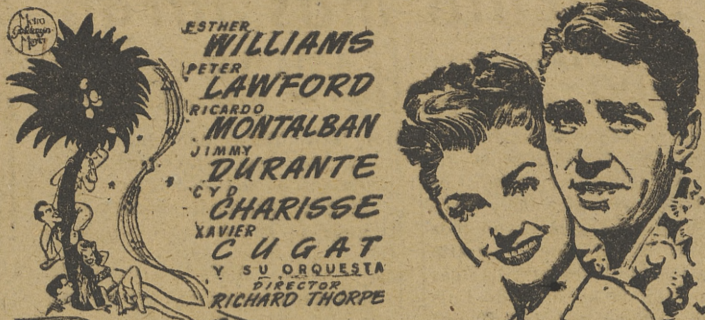 Metro
Goldwyn
Mayer
ESTHER
WILLIAMS
PETER
LAWFORD
RICARDO
MONTALBAN
JIMMY
DURANTE
CYD
CHARISSE
XAVIER
CUGAT
Y SU ORQUESTA
DIRECTOR
RICHARD THORPE